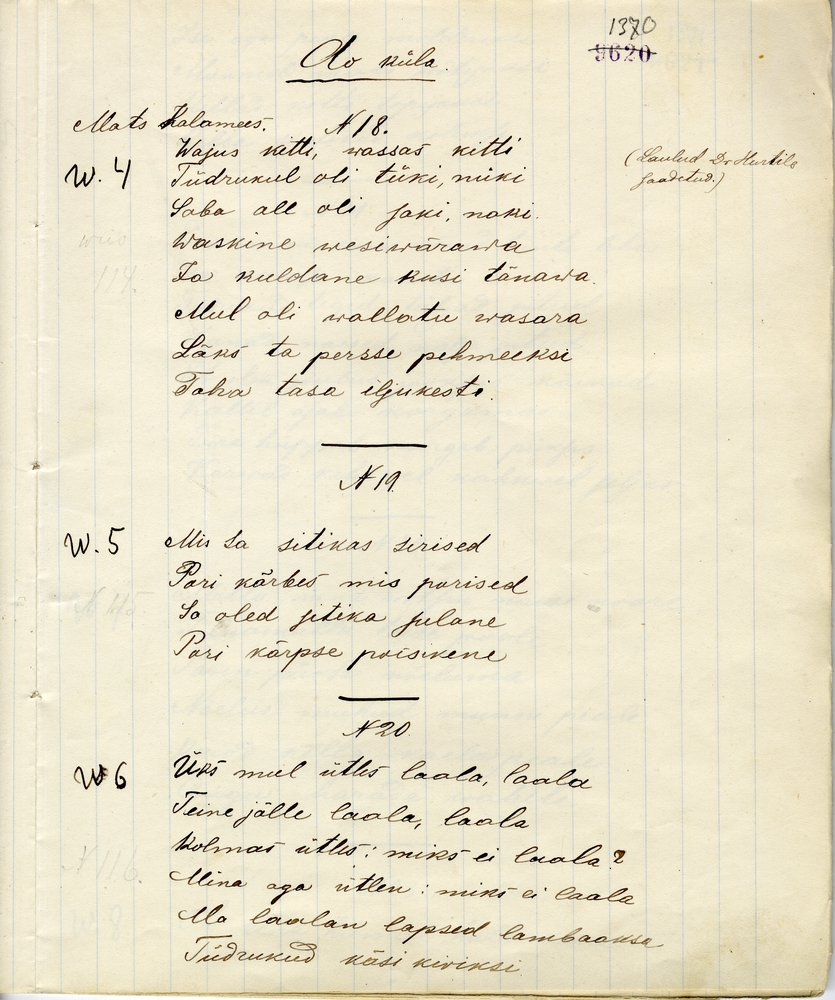 1370
9620
Ao küla.
Mats Kalamees. N 18.
Wajus kitti, wassas kitti
W. 4 Tüdrukul oli tüki, niiki
(Laulud Dr Hurtile saadetud.)
Saba all oli saki, naki.
Waskine wesiwärawa
Ja kuldane kusi tänawa.
Mul oli wallatu wasara
Läks ta persse pehmeeksi
Taha tasa iljukesti.
N 19.
W. 5 Mis sa sitikas sirised
Pori kärbes mis porised
Sa oled sitika sulane
Pori kärpse poisikene
N 20.
W 6 Üks mul ütles laala, laala
Teine jälle laala, laala
Kolmas ütles: miks ei laala?
Mina aga ütlen: miks ei laala
Ma laalan lapsed lambaaksa
Tüdrukud käsi kiwiksi